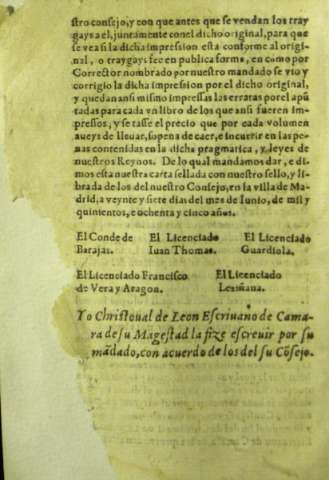 stro consejo, y con que antes que se vendan los tray
gays a el, juntamente con el dicho original, para que
se vea si la dicha impression esta conforme al origi-
nal, o traygays fee en publica forma, en como por
Corrector nombrado por nuestro mandado se vio y
corrigio la dicha impression por el dicho original,
y quedan ansi mismo impressas las erratas por el apũ
tadas para cada vn libro de los que ansi fueren im-
pressos, y se tasse el precio que por cada volumen
aueys de lleuar, so pena de caer, e incurrir en las pe-
nas contenidas en la dicha pragmatica, y leyes de
nuestros Reynos. De lo qual mandamos dar, e di-
mos esta nuestra carta sellada con nuestro sello, y li-
brada de los del nuestro Consejo, en la villa de Ma-
drid, a veynte y siete dias del mes de Iunio, de mil y
quinientos, e ochenta y cinco años.
El Conde de El Licenciado El Licenciado
Barajas. Iuan Thomas. Guardiola.
El Licenciado Francisco El Licenciado
de Vera y Aragon. Lesiñana.
Yo Christoual de Leon Escriuano de Cama-
ra de su Magestad la fize escreuir por su
mãdado, con acuerdo de los del su Cõsejo.